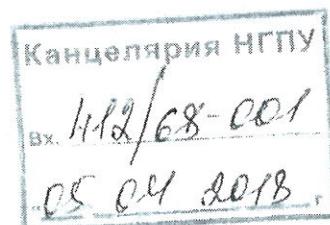 Канцелярия НГПУ
Вх. 412/68-001
"05 04 2018 г